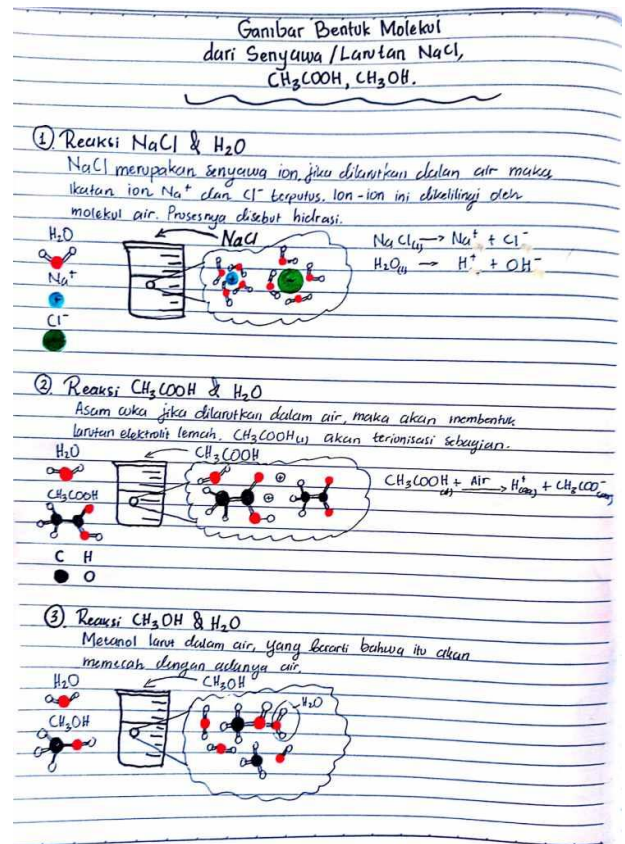 Gambar Bentuk Molekul
dari Senyawa/Larutan NaCl,
CH₃COOH, CH₃OH.
① Reaksi NaCl & H₂O
NaCl merupakan senyawa ion, jika dilarutkan dalan air maka
ikatan ion Na⁺ dan Cl⁻ terputus. Ion-ion ini dikelilingi oleh
molekul air. Prosesnya disebut hidrasi.
H₂O
NaCl
Na⁺
+
Cl⁻
NaCl₍ₗ₎ → Na⁺ + Cl⁻
H₂O₍ₗ₎ → H⁺ + OH⁻
② Reaksi CH₃COOH & H₂O
Asam cuka jika dilarutkan dalam air, maka akan membentuk
larutan elektrolit lemah. CH₃COOH₍ₗ₎ akan terionisasi sebagian.
H₂O
CH₃COOH
CH₃COOH
⊕
⊕
CH₃COOH + Air → H⁺ + CH₃COO⁻
C H
O
③ Reaksi CH₃OH & H₂O
Metanol larut dalam air, yang berarti bahwa itu akan
memecah dengan adanya air.
H₂O
CH₃OH
CH₃OH
H₂O